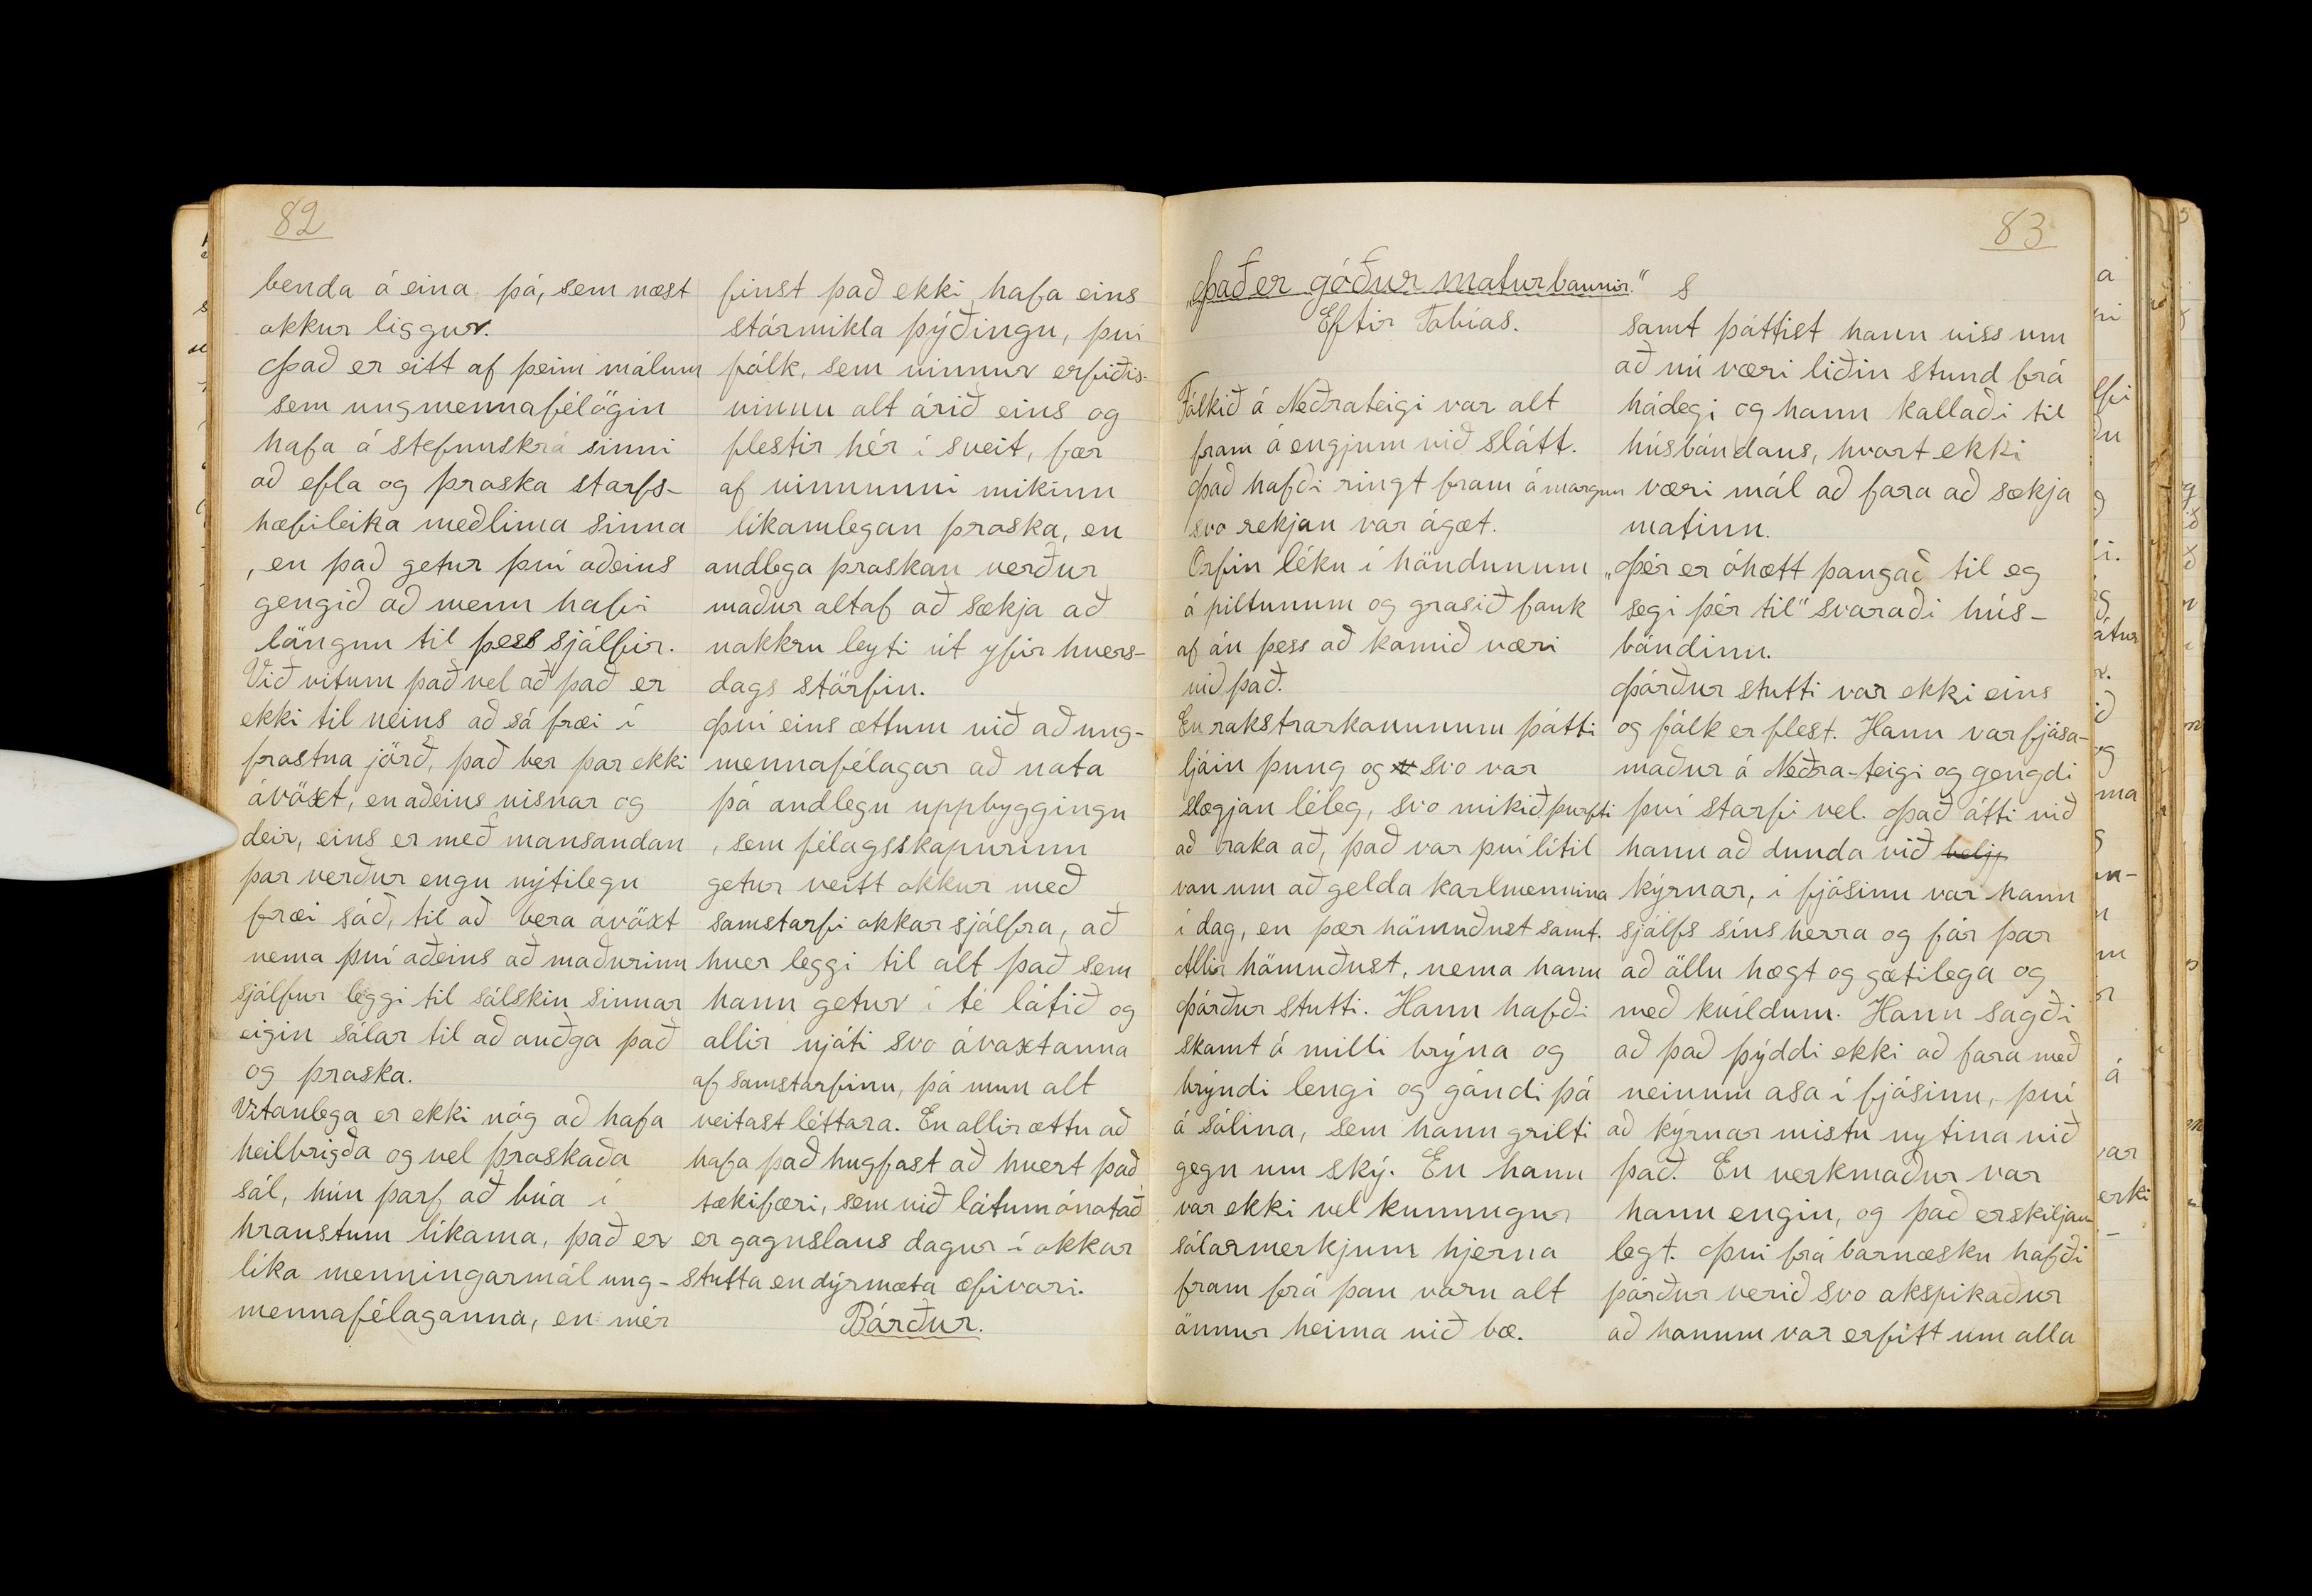 82
benda á eina þá, sem næst
okkur liggur.
Það er eitt af þeim málum
sem ungmennafélögin
hafa á stefnuskrá sinni
að efla og þroska starfs-
hæfileika meðlima sinna
, en það getur því aðeins
gengið að menn hafi
löngun til þess sjálfir.
Við vitum það vel að það er
ekki til neins að sá fræi í
frostna jörð, það ber þar ekki
ávöxt, en aðeins visnar og
deir, eins er með mansandan
þar verður engu nýtilegu
fræi sáð, til að bera avöxt
nema því aðeins að maðurinn
sjálfur leggi til sólskin sinnar
eigin sálar til að auðga það
og þroska.
Vitanlega er ekki nóg að hafa
heilbrigða og vel þroskaða
sál, hún þarf að búa í
hraustum líkama, það er
líka menningarmál ung-
mennafélaganna, en mér
finst það ekki hafa eins
stórmikla þýðingu, því
fólk, sem vinnur erfiðis-
vinnu alt árið eins og
flestir hér í sveit, fær
af vinnunni mikinn
líkamlegan þroska, en
andlega þroskan verður
maður altaf að sækja að
nokkru leyti út yfir hvers-
dags störfin.
Því eins ættum við að ung-
mennafélagar að nota
þá andlegu uppbyggingu
, sem félagsskapurinn
getur veitt okkur með
samstarfi okkar sjálfra, að
hver leggi til alt það sem
hann getur í té látið og
allir njóti svo ávaxtanna
af samstarfinu, þá mun alt
veitast léttara. En allir ættu að
hafa það hugfast að hvert það
tækifæri, sem við látum ónotað
er gagnslaus dagur í okkar
stutta en dýrmæta æfivari.
Bárður.
83
„Það er góður maturbaunir." s
Eftir Tobías.
Fólkið á Neðrateigi var alt
fram á engjum við slátt.
Það hafði ringt fram á morgun
svo rekjan var ágæt.
Orfin léku í höndunum
á piltunum og grasið fauk
af án þess að komið væri
við það.
En rakstrarkonunum þótti
ljáin þung og svo var
slægjan léleg, svo mikið þurfti
að raka að, það var því lítil
von um að gelda karlmennina
í dag, en þær hömuðust samt.
Allir hömuðust, nema hann
Þórður stutti. Hann hafði
skamt á milli brýna og
brýndi lengi og gándi þá
á sólina, sem hann grilti
gegn um ský. En hann
var ekki vel kunnugur
sólarmerkjum hjerna
fram frá þau voru alt
önnur heima við bæ.
samt þóttist hann viss um
að nú væri liðin stund frá
hádegi og hann kallaði til
húsbóndans, hvort ekki
væri mál að fara að sækja
matinn.
„Þér er óhætt þangað til eg
segi þér til" svaraði hús-
bóndinn.
Þórður stutti var ekki eins
og fólk er flest. Hann var fjósa-
maður á Neðra-teigi og gengdi
því starfi vel. Það átti við
hann að dunda við beljp
kýrnar, í fjósinu var hann
sjálfs síns herra og fór þar
að öllu hægt og gætilega og
með kvíldum. Hann sagði
að það þýddi ekki að fara með
neinum asa í fjósinu, því
að kýrnar mistu nytina við
það. En verkmaður var
hann engin, og það er skiljan
legt. Því frá barnæsku hafði
þórður verið svo akspikaður
að honum var erfitt um alla